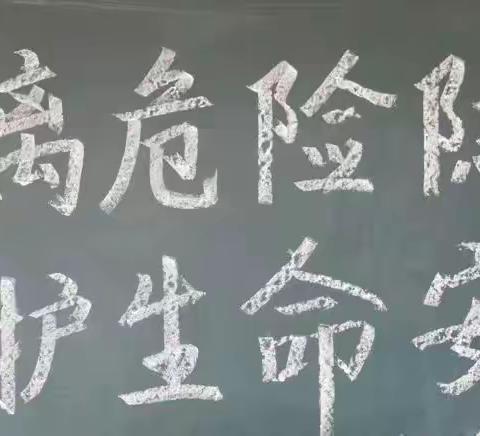 离危险
护生命安